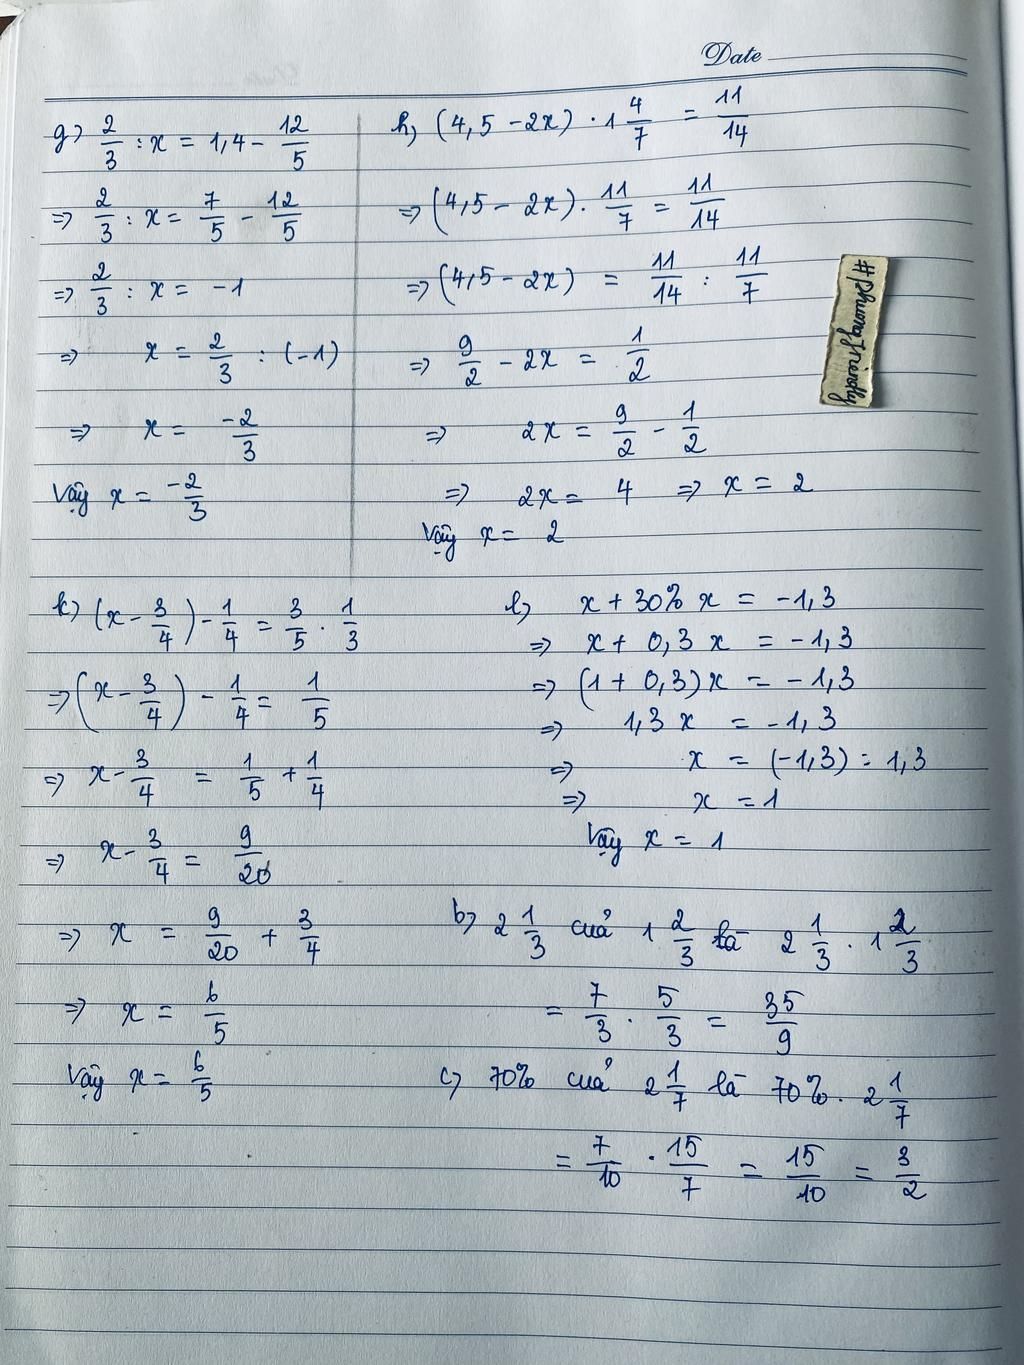 Date
g) 2/3 : x = 1,4 - 12/5
=> 2/3 : x = 7/5 - 12/5
=> 2/3 : x = -1
=> x = 2/3 : (-1)
=> x = -2/3
Vậy x = -2/3
h) (4,5 - 2x) . 1 4/7 = 11/14
=> (4,5 - 2x) . 11/7 = 11/14
=> (4,5 - 2x) = 11/14 : 11/7
=> 9/2 - 2x = 1/2
=> 2x = 9/2 - 1/2
=> 2x = 4 => x = 2
Vậy x = 2
#phuongfriendly
k) (x - 3/4) - 1/4 = 3/5 . 1/3
=> (x - 3/4) - 1/4 = 1/5
=> x - 3/4 = 1/5 + 1/4
=> x - 3/4 = 9/20
=> x = 9/20 + 3/4
=> x = 6/5
Vậy x = 6/5
l) x + 30% x = -1,3
=> x + 0,3 x = -1,3
=> (1 + 0,3)x = -1,3
=> 1,3 x = -1,3
=> x = (-1,3) : 1,3
=> x = 1
Vậy x = 1
b) 2 1/3 của 1 2/3 là 2 1/3 . 1 2/3
= 7/3 . 5/3 = 35/9
c) 70% của 2 1/7 là 70% . 2 1/7
= 7/10 . 15/7 = 15/10 = 3/2